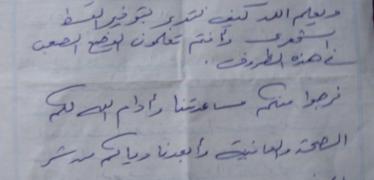 ويعلم الله كيف نتدبر بتوفير القسط
الشهري وأنتم تعلمون الوضع الصعب
في هذه الظروف.
نرجوا منكم مساعدتنا وأدام الله لكم
الصحة والعافية وأبعدنا وياكم من شر